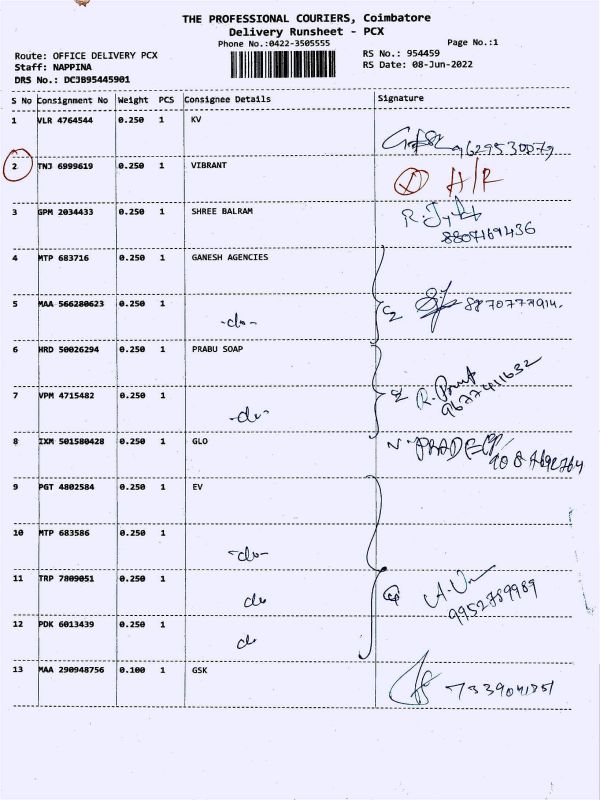 THE PROFESSIONAL COURIERS, Coimbatore
Delivery Runsheet - PCX
Phone No.:0422-3505555
Page No.:1
Route: OFFICE DELIVERY PCX
RS No.: 954459
Staff: NAPPINA
RS Date: 08-Jun-2022
DRS No.: DCJB95445901
S No Consignment No Weight PCS Consignee Details Signature
1 VLR 4764544 0.250 1 KV
9629530079
2 TNJ 6999619 0.250 1 VIBRANT
A/R
3 GPM 2034433 0.250 1 SHREE BALRAM
8807169436
4 MTP 683716 0.250 1 GANESH AGENCIES
5 MAA 566280623 0.250 1
-do- 8870777914.
6 HRD 50026294 0.250 1 PRABU SOAP
7 VPM 4715482 0.250 1
-do- 9677411632
8 IXM 501580428 0.250 1 GLO
N. PRADEEP
9 PGT 4802584 0.250 1 EV
10 MTP 683586 0.250 1
-do-
11 TRP 7809051 0.250 1
do 9952789989
12 PDK 6013439 0.250 1
do
13 MAA 290948756 0.100 1 GSK